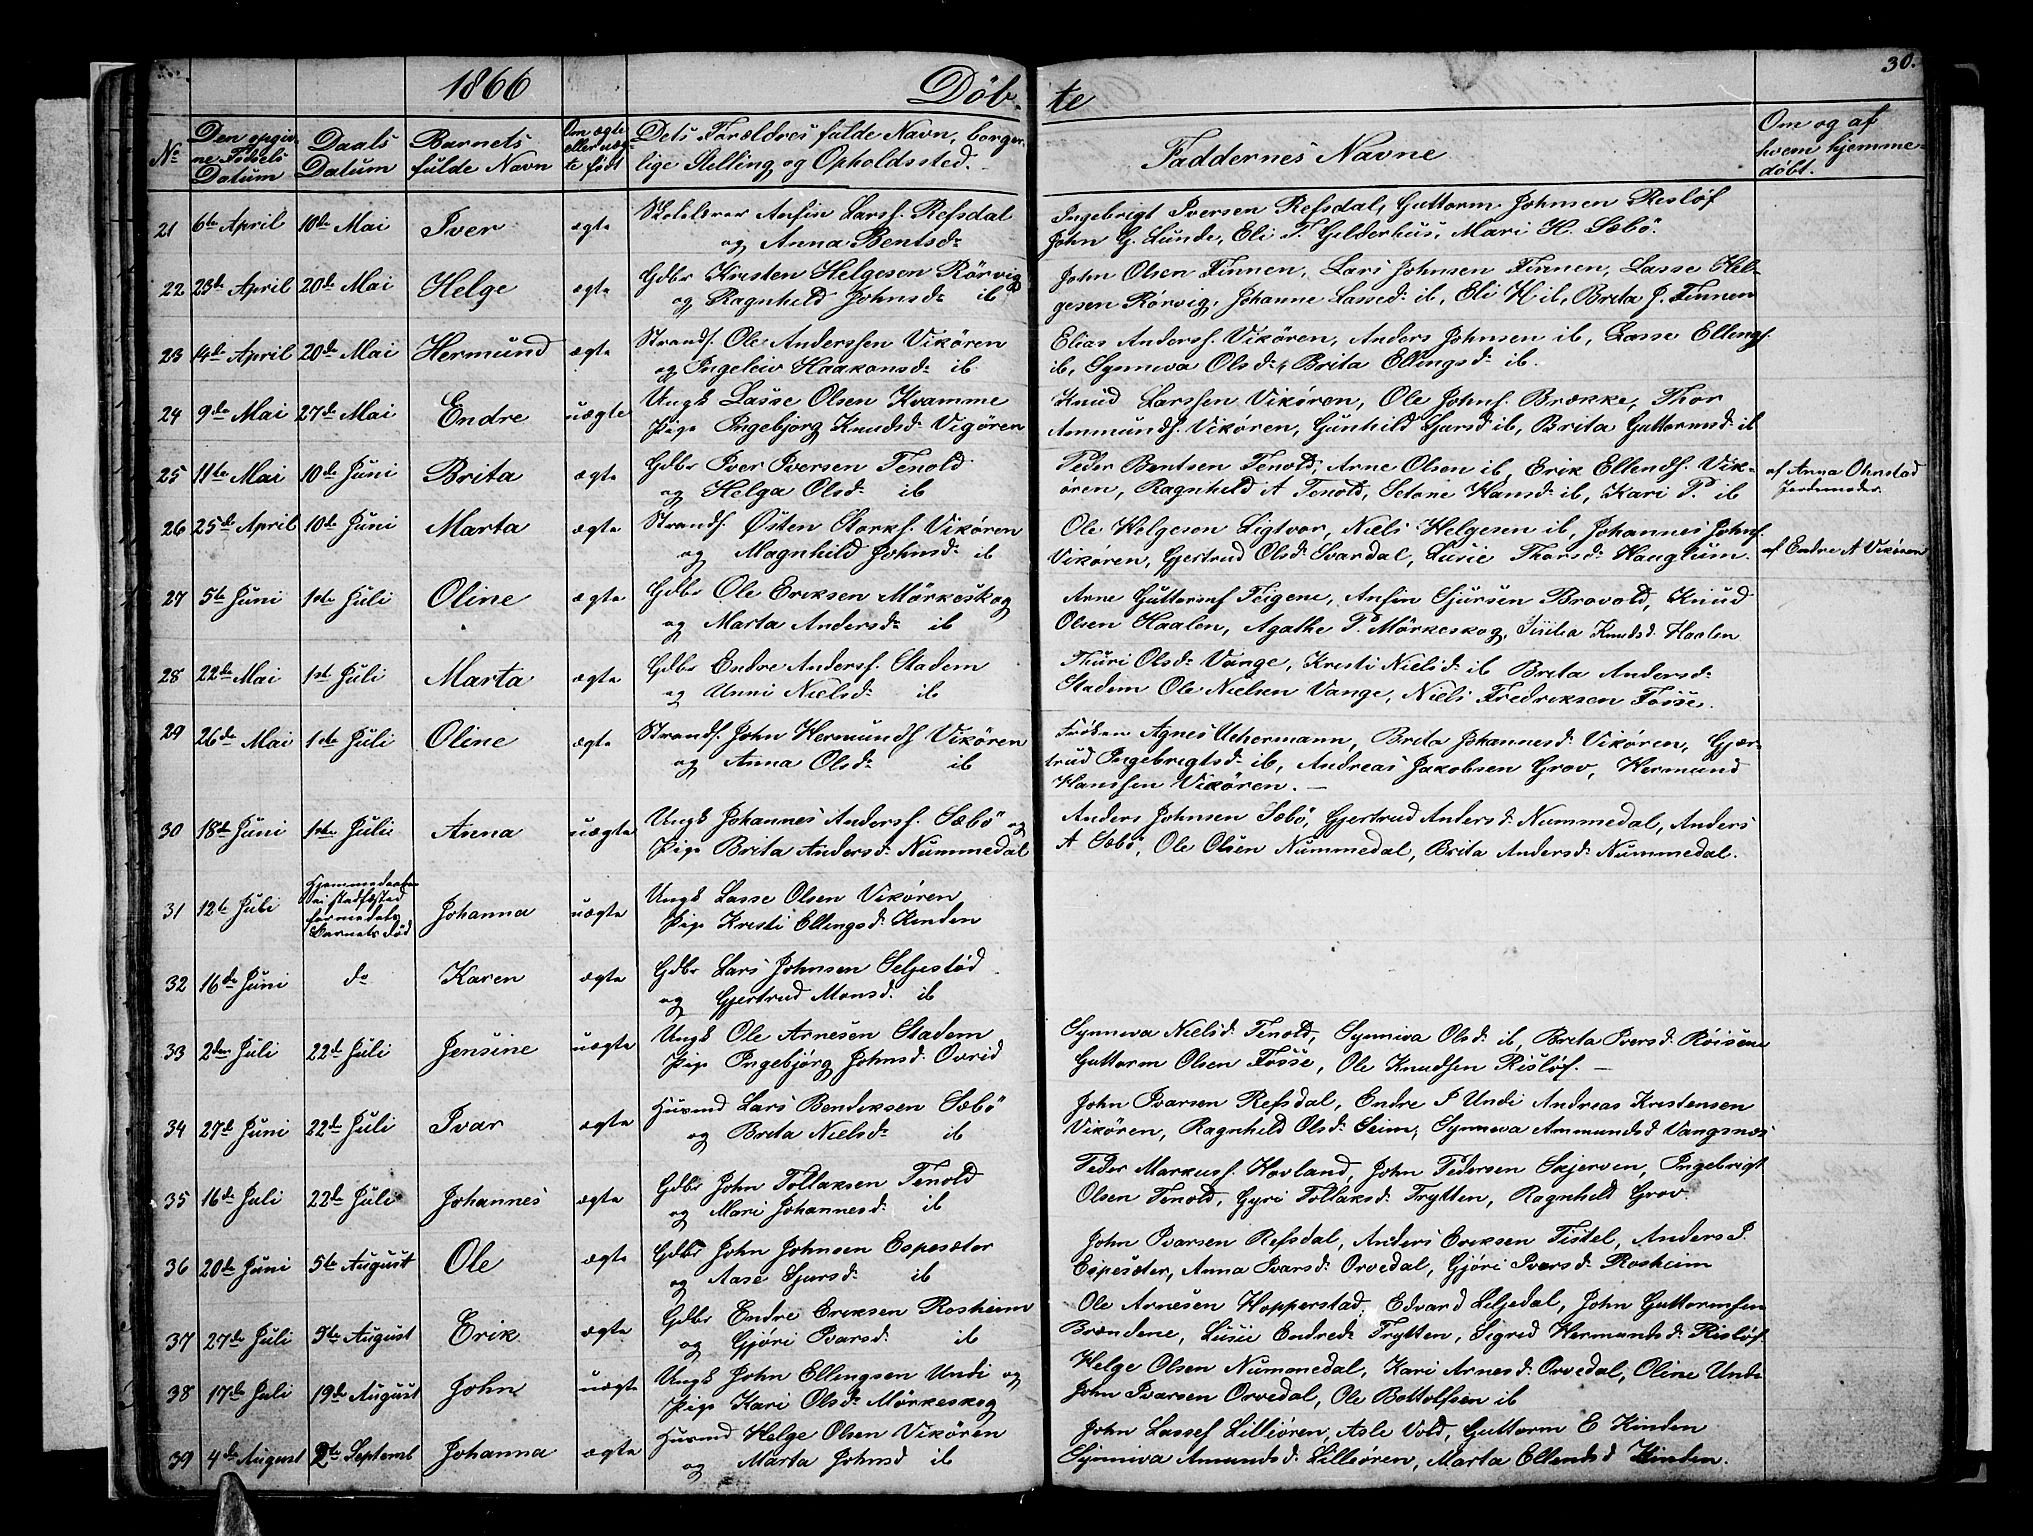 30.
1866
Döb-
te
No
Den opgiv-
ne Födsels
Datum
Daabs
Datum
Barnets
fulde Navn
Om ægte
eller uæg-
te født
Dets Forældres fulde Navn, borger-
lige Stilling og Opholdssted.
Faddernes Navne
Om og af
hvem hjemme-
døbt.
21 6te April 10de Mai Iver ægte
Skolelærer Anfin Larsf. Refsdal
og Anna Bentsdr
Ingebrigt Iversen Refsdal, Guttorm Johnsen Risløf
John G. Lunde, Eli T. Gilderhus, Mari H. Sæbö
22 23de April 20de Mai Helge ægte
Gdbr Kristen Helgesen Rörvig
og Ragnhild Johnsdr ib
John Olsen Finnen, Lars Johnsen Finnen, Lasse Hel-
gesen Rörvig, Johanne Lassed. ib, Eli H ib, Brita J. Finnen
23 14de April 20de Mai Hermund ægte
Strands. Ole Anderssen Vikören
og Ingeleiv Haakonsdr ib
Elias Andersf. Vikören, Anders Johnsen ib, Lasse Ellingf.
ib, Synneva Olsdr, Brita Ellingsdr ib.
24 9de Mai 27de Mai Endre uægte
Ungk Lasse Olsen Kvamme
Pige Ingebjörg Knudsdr Vigören
Knud Larssen Vikören, Ole Johnf. Brække, Thor
Ammundf. Vikören, Gunhild Sjursd ib, Brita Guttormsd ib
25 11te Mai 10de Juni Brita ægte
Gdbr Iver Iversen Tenold
og Helga Olsdr ib
Peder Bentsen Tenold, Arne Olsen ib, Erik Ellendf. Vik-
ören, Ragnhild A Tenold, Hansdr ib, Kari P. ib
af Anna Ohnstad
Jordemoder
26 25de April 10de Juni Marta ægte
Strands. Østen Storkf. Vikören
og Magnhild Johnsdr ib
Ole Helgeson Ligtvor, Niels Helgesen ib, Johannes Johnf.
Vikören, Gjertrud Olsdr Svardal, Lusie Thorsdr Hauglum.
af Endre A Vikören
27 5te Juni 1ste Juli Oline ægte
Gdbr Ole Eriksen Mörkeskog
og Marta Andersdr ib
Arne Guttormsf Teigene, Anfin Sjursen Brovold, Knud
Olsen Haalen, Agathe P. Mörkeskog, Knudsd. Haalen
28 22de Mai 1ste Juli Marta ægte
Gdbr Endre Andersf. Stadem
og Unni Nielsdr ib
Thuri Olsdr Vange, Kristi Nielsdr ib Brita Andersdr
Stadem Ole Nielsen Vange, Niels Fredriksen Fosse.
29 26de Mai 1ste Juli Oline ægte
Strands. John Hermundf Vikören
og Anna Olsdr ib
Fröken Agnes Uchermann, Brita Johannesdr Vikören, Gjær-
trud Ingebrigtsdr ib, Andreas Jakobsen Grov, Hermund
Hanssen Vikören. —
30 18de Juni 1ste Juli Anna uægte
Ungk Johannes Andersf. Sæbö og
Pige Brita Andersdr Nummedal
Anders Johnsen Sæbö, Gjertrud Andersd. Nummedal, Anders
A Sæbö, Ole Olsen Nummedal, Brita Andersdr Nummedal.
31 12te Juli
Hjemmedaaben
ei stadfæsted
formedelst
Barnets Död
Johanna uægte
Ungk Lasse Olsen Vikören
Pige Kristi Ellingsdr Hinden
32 16de Juni do Karen ægte
Gdbr Lars Johnsen Seljestöd
og Gjertrud Monsd. ib
33 2den Juli 22de Juli Jensine uægte
Ungk Ole Arnesen Stadem
Pige Ingebjörg Johnsdr Ovrid
Synneva Nielsdr Tenold, Synniva Olsdr ib, Brita Iversdr Röisene
Guttorm Olsen Fosse, Ole Knudsen Risløf. —
34 27de Juni 22de Juli Ivar ægte
Husmd Lars Bendiksen Sæbö
og Brita Nielsdr ib
John Ivarsen Refsdal, Endre I Undi Andreas Kristensen
Vikören, Ragnhild Olsdr Seim, Synneva Ammundsd Vangsnæs
35 16de Juli 22de Juli Johannes ægte
Gdbr John Tollaksen Tenold
og Mari Johannesdr ib
Peder Markusf. Hovland, John Pedersen Skjerven, Ingebrigt
Olsen Tenold, Gyri Tollaksdr Trytten, Ragnhild Grov.
36 20de Juni 5te August Ole ægte
Gdbr John Johnsen Espesæter
og Aase Sjursdr ib
John Ivarsen Refsdal, Anders Eriksen Tistel, Anders I.
Espesæter, Anna Ivarsdr Orvedal, Gjöri Ivarsdr Rosheim
37 27de Juli 5te August Erik ægte
Gdbr Endre Eriksen Rosheim
og Gjöri Ivarsdr ib
Ole Arnesen Hopperstad, Edvard Liljedal, John Guttormsen
Brændene, Lusie Endredr Trytten, Sigrid Hermundsdr Risløf.
38 17de Juli 19de August John uægte
Ungk John Ellingsen Undi og
Pige Kari Olsdr Mörkeskog
Helge Olsen Nummedal, Kari Arnesdr Orvedal, Oline Undi
John Ivarsen Orvedal, Ole Bottolfsen ib
39 4de August 2de Septemb Johanna ægte
Husmd Helge Olsen Vikören
og Marta Johnsd ib
John Lassef Lilliören, Asle Vold, Guttorm E Hinden
Synniva Amundsdr Lilleören, Marta Ellendsd Hinden.